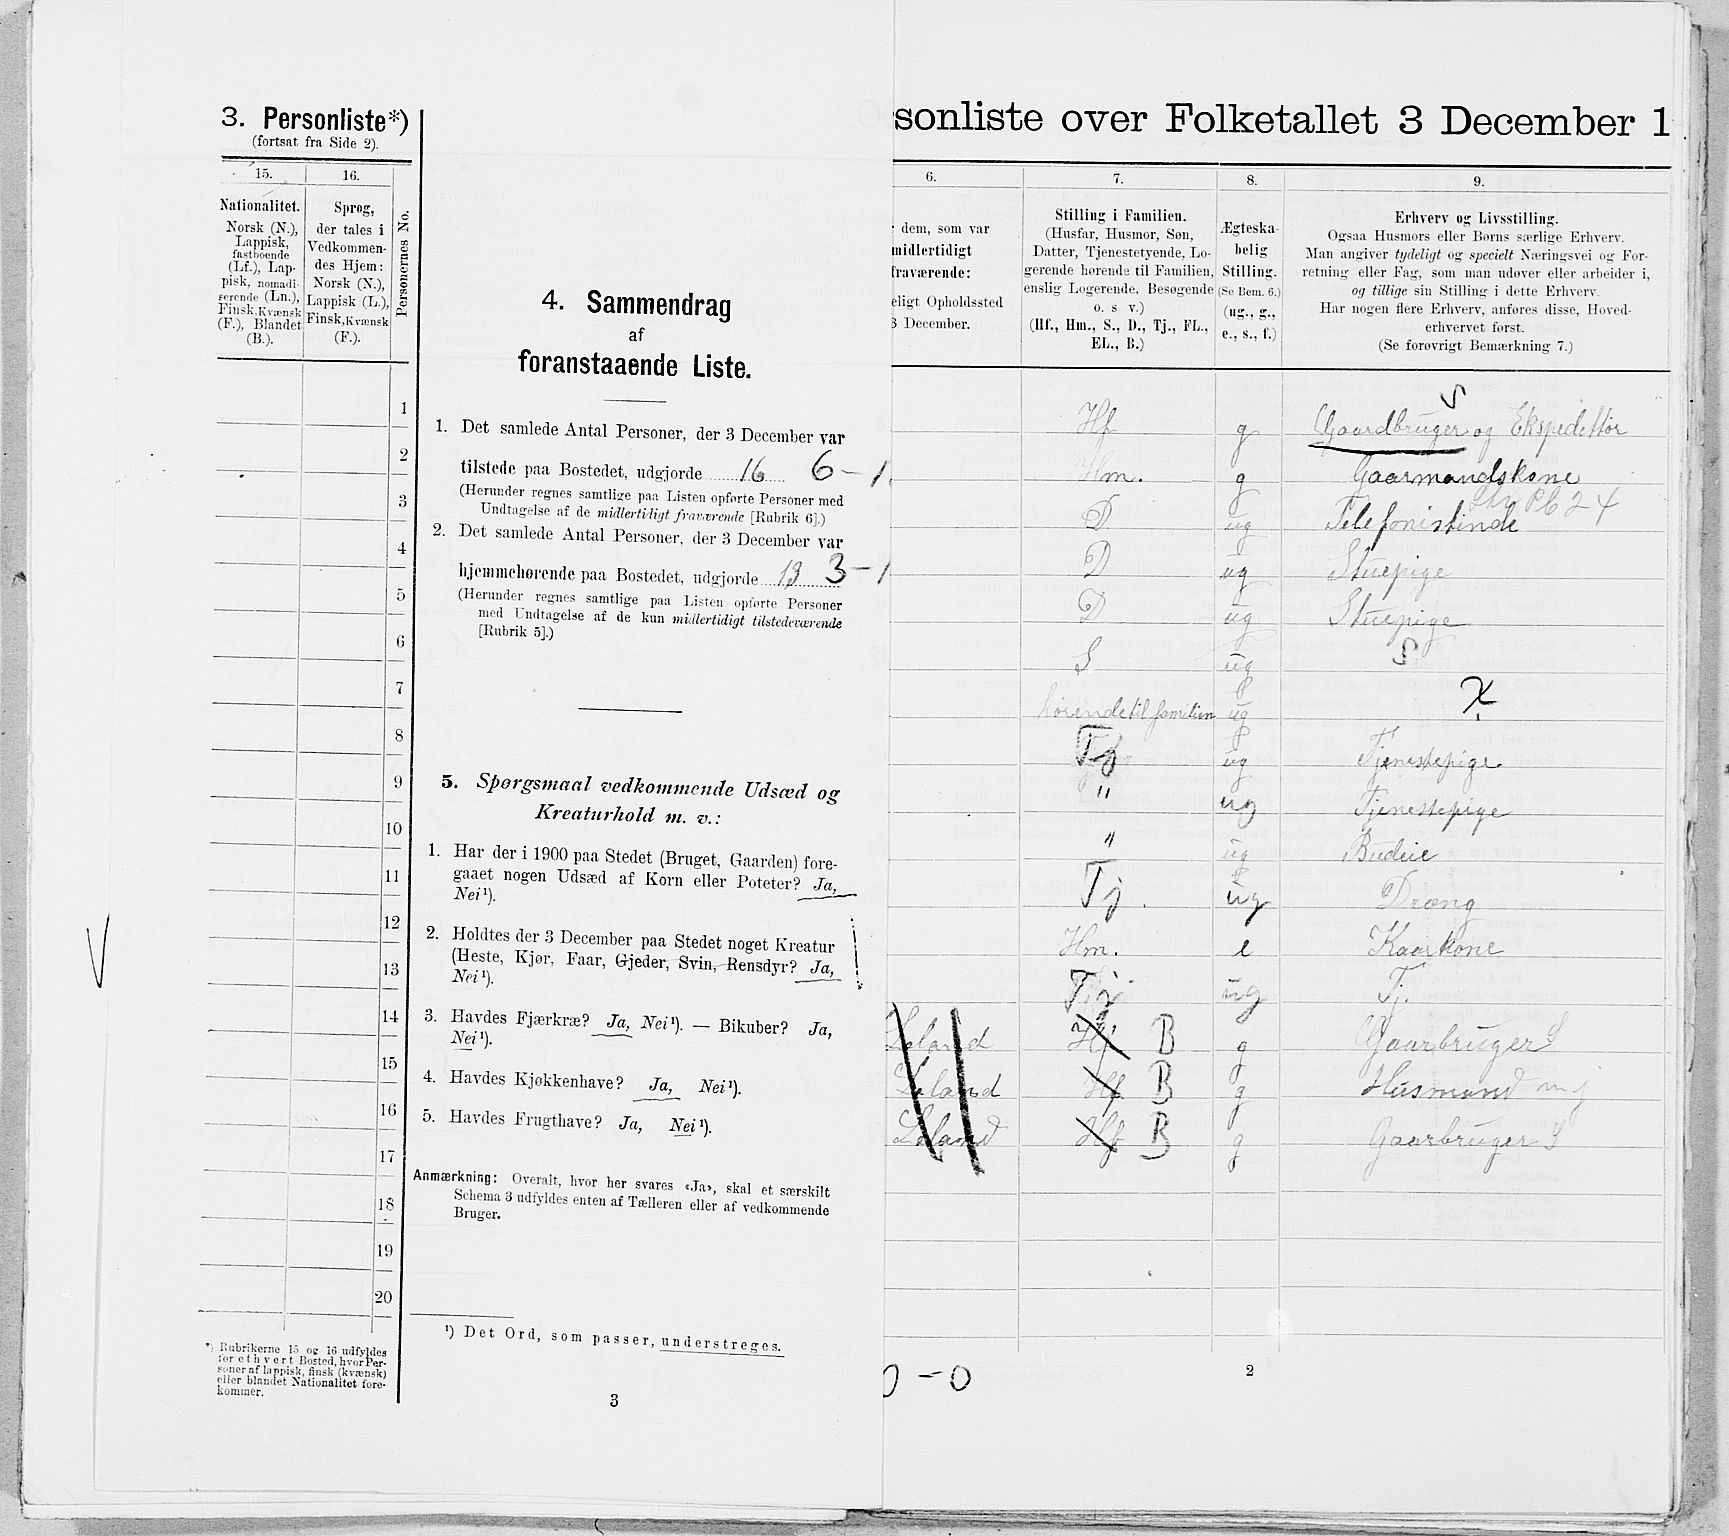 3. Personliste*)
(fortsat fra Side 2).
15.
16.
Personernes No.
Nationalitet.
Norsk (N.),
Lappisk,
fastboende
(Lf.), Lap-
pisk, nomadi-
serende (Ln.),
Finsk, Kvænsk
(F.), Blandet
(B.).
Sprog,
der tales i
Vedkommen-
des Hjem:
Norsk (N.),
Lappisk (L.),
Finsk, Kvænsk
(F.).
1
2
3
4
5
6
7
8
9
10
11
12
13
14
15
16
17
18
19
20
*) Rubrikerne 15 og 16 udfyldes
for ethvert Bosted, hvor Per-
soner af lappisk, finsk (kvænsk)
eller blandet Nationalitet fore-
kommer.
4. Sammendrag
af
foranstaaende Liste.
1. Det samlede Antal Personer, der 3 December var
tilstede paa Bostedet, udgjorde 16 6 – 1
(Herunder regnes samtlige paa Listen opførte Personer med
Undtagelse af de midlertidigt fraværende [Rubrik 6].)
2. Det samlede Antal Personer, der 3 December var
hjemmehørende paa Bostedet, udgjorde 13 3 – 1
(Herunder regnes samtlige paa Listen opførte Personer
med Undtagelse af de kun midlertidigt tilstedeværende
[Rubrik 5].)
5. Spørgsmaal vedkommende Udsæd og
Kreaturhold m. v.:
1. Har der i 1900 paa Stedet (Bruget, Gaarden) fore-
gaaet nogen Udsæd af Korn eller Poteter? Ja,
Nei¹).
2. Holdtes der 3 December paa Stedet noget Kreatur
(Heste, Kjør, Faar, Gjeder, Svin, Rensdyr? Ja,
Nei¹).
3. Havdes Fjærkræ? Ja, Nei¹). — Bikuber? Ja,
Nei¹).
4. Havdes Kjøkkenhave? Ja, Nei¹).
5. Havdes Frugthave? Ja, Nei¹).
Anmærkning: Overalt, hvor her svares «Ja», skal et særskilt
Schema 3 udfyldes enten af Tælleren eller af vedkommende
Bruger.
¹) Det Ord, som passer, understreges.
3
sonliste over Folketallet 3 December 1
6.
7.
8.
9.
dem, som var
midlertidigt
fraværende:
eligt Opholdssted
3 December.
Stilling i Familien.
(Husfar, Husmor, Søn,
Datter, Tjenestetyende, Lo-
gerende hørende til Familien,
enslig Logerende, Besøgende
o. s v.)
(Hf., Hm., S., D., Tj., FL.,
EL., B.)
Ægteska-
belig
Stilling.
(Se Bem. 6.)
(ug., g.,
e., s., f.)
Erhverv og Livsstilling.
Ogsaa Husmors eller Børns særlige Erhverv.
Man angiver tydeligt og specielt Næringsvei og For-
retning eller Fag, som man udøver eller arbeider i,
og tillige sin Stilling i dette Erhverv.
Har nogen flere Erhverv, anføres disse, Hoved-
erhvervet først.
(Se forøvrigt Bemærkning 7.)
Hf g Gaardbruger og Ekspeditör
Hm. g Gaarmandskone
D ug Telefonistinde
D ug Stuepige
D ug Stuepige
S ug
hørende til familien ug
Tj ug Tjenestepige
" ug Tjenestepige
" ug Budeie
Tj. ug Dræng
Hm. e Kaarkone
Tj ug Tj.
Leland Hf B g Gaarbruger S
Leland Hf B g Husmand m j
Leland Hf B g Gaarbruger S
0 – 0
2